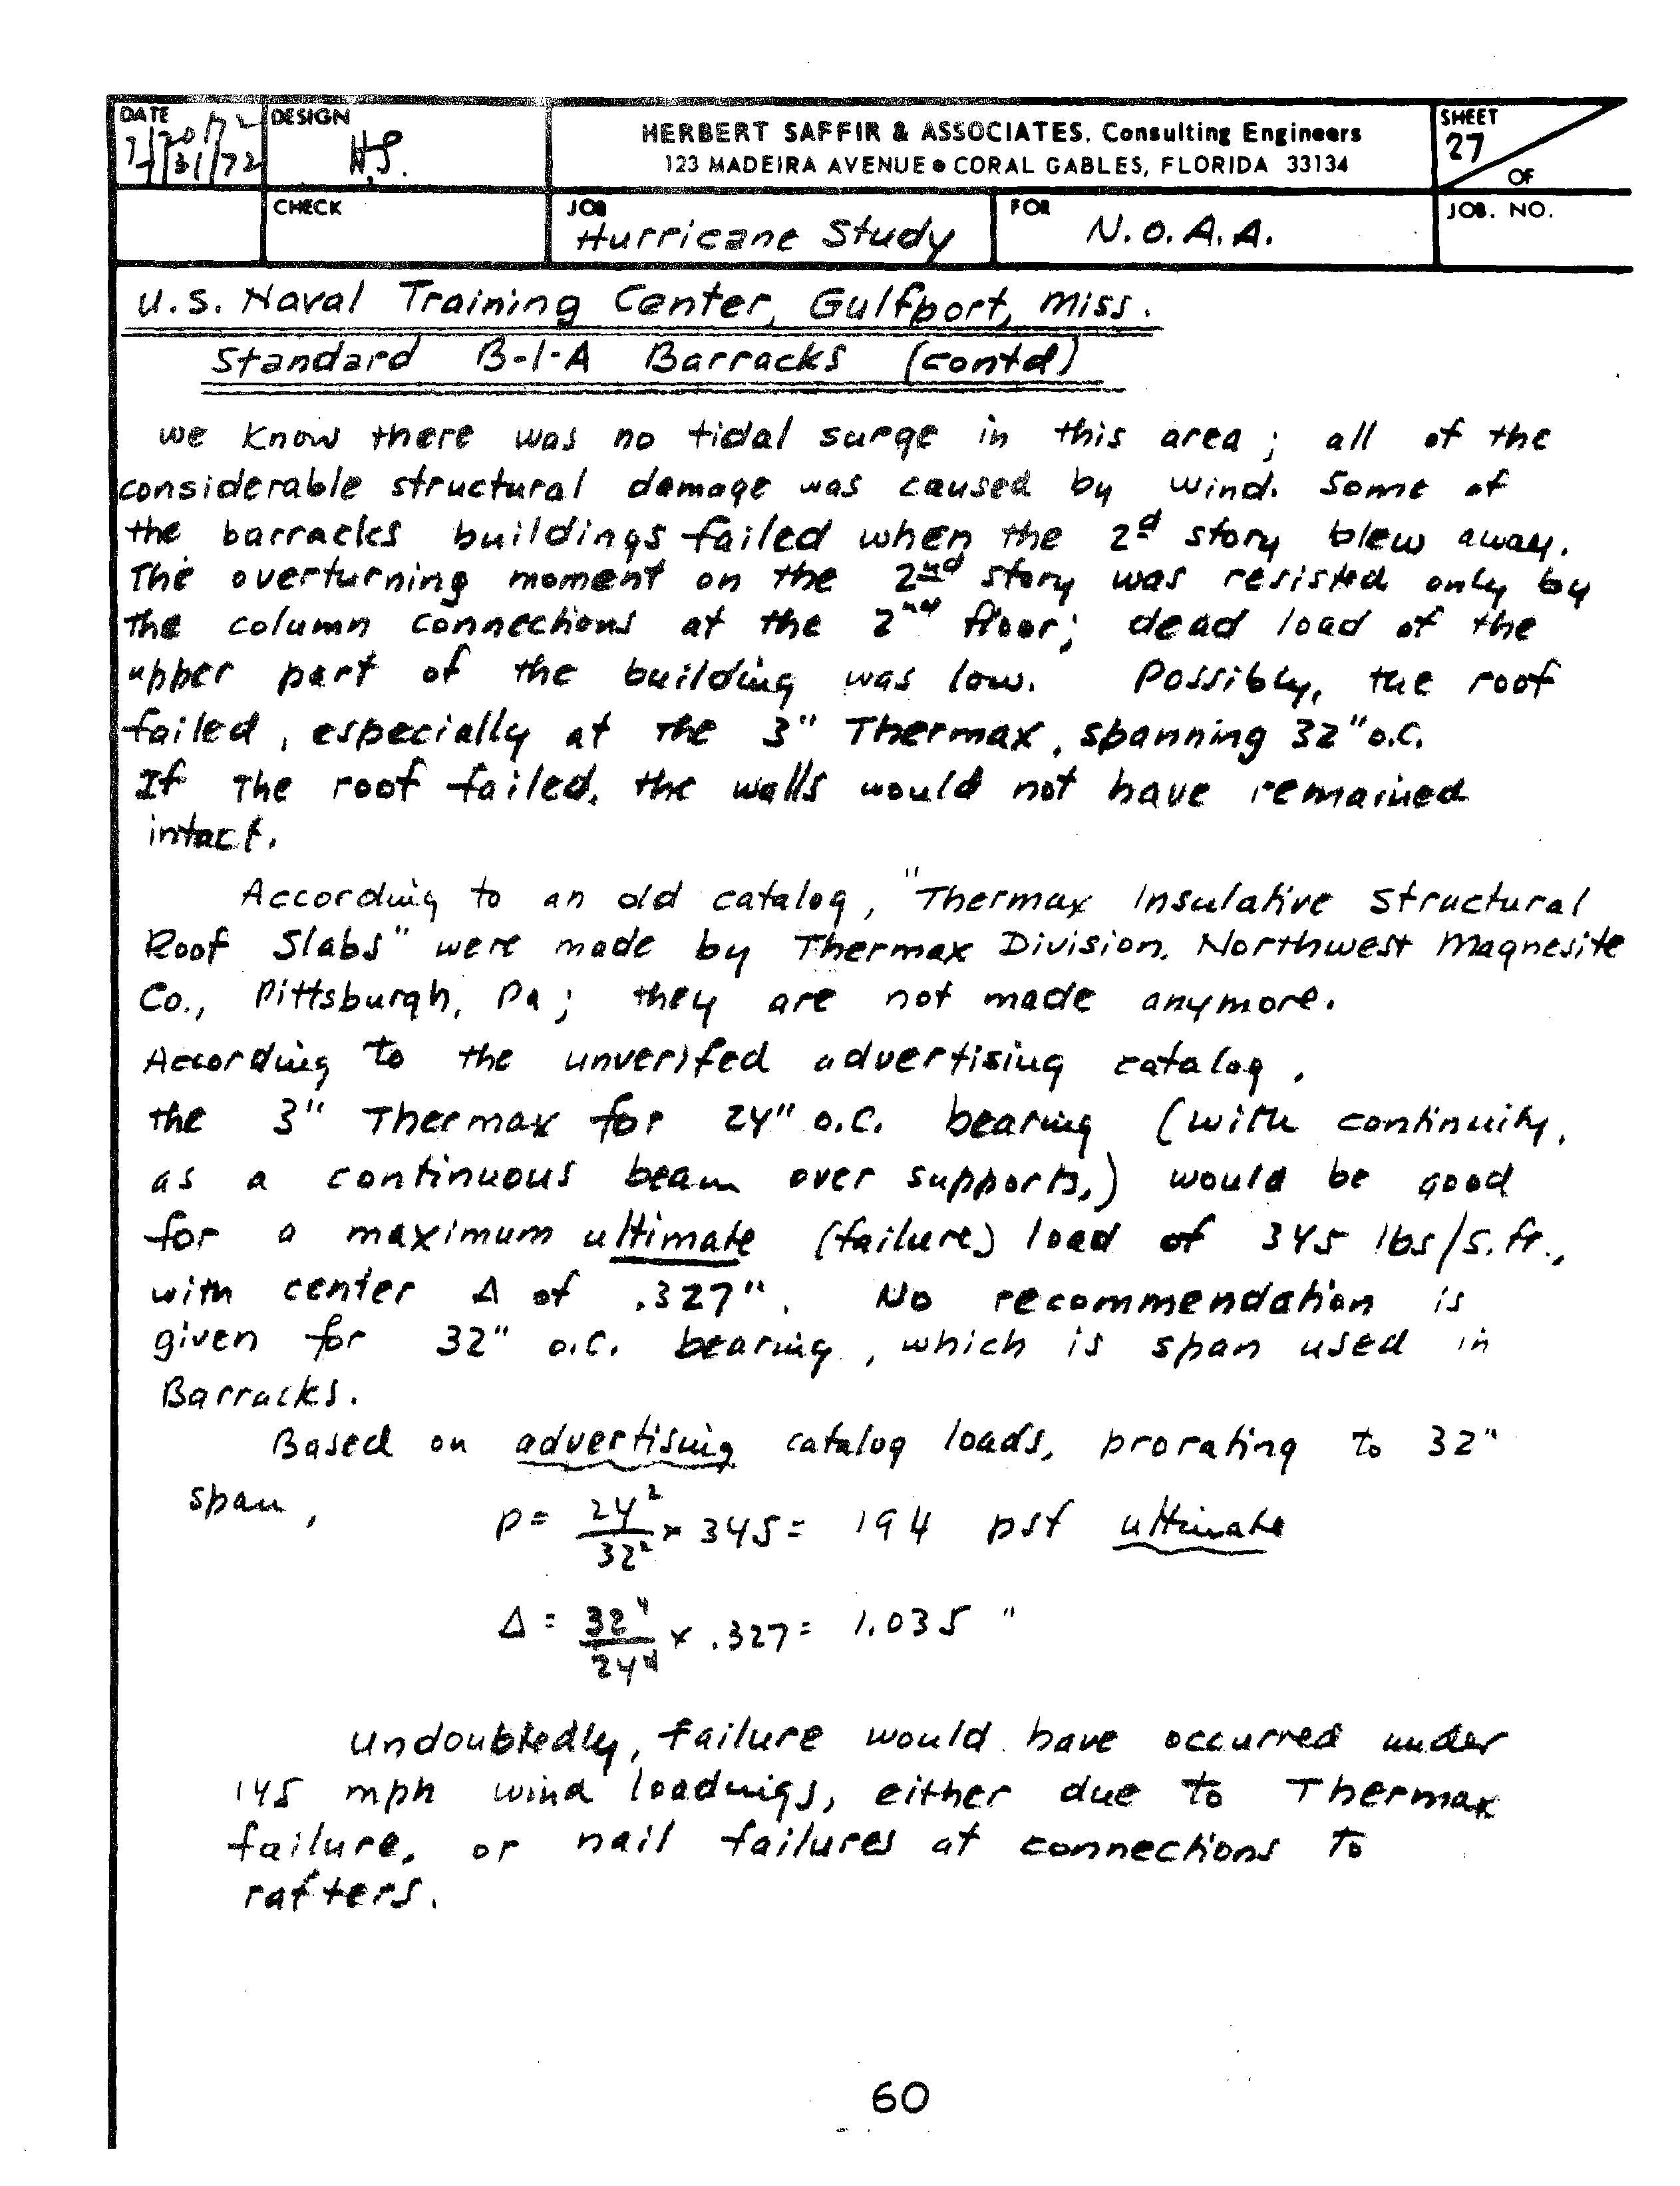 DATE
7/30/72
7/31/72
DESIGN
H.S.
HERBERT SAFFIR & ASSOCIATES, Consulting Engineers
123 MADEIRA AVENUE • CORAL GABLES, FLORIDA 33134
SHEET
27
OF
CHECK
JOB
Hurricane Study
FOR
N.O.A.A.
JOB. NO.
U.S. Naval Training Center, Gulfport, Miss.
Standard B-1-A Barracks (contd)
we know there was no tidal surge in this area; all of the
considerable structural damage was caused by wind. Some of
the barracks buildings failed when the 2d story blew away.
The overturning moment on the 2nd story was resisted only by
the column connections at the 2nd floor; dead load of the
upper part of the building was low. Possibly, the roof
failed, especially at the 3" Thermax, spanning 32" o.c.
If the roof failed, the walls would not have remained
intact.
According to an old catalog, "Thermax Insulative Structural
Roof Slabs" were made by Thermax Division, Northwest Magnesite
Co., Pittsburgh, Pa; they are not made anymore.
According to the unverifed advertising catalog,
the 3" Thermax for 24" o.c. bearing (with continuity,
as a continuous beam over supports,) would be good
for a maximum ultimate (failure) load of 345 lbs/s.ft.,
with center Δ of .327". No recommendation is
given for 32" o.c. bearing, which is span used in
Barracks.
Based on advertising catalog loads, prorating to 32"
span,
p = 24²/32² x 345 = 194 psf ultimate
Δ = 32⁴/24⁴ x .327 = 1.035 "
Undoubtedly, failure would have occurred under
145 mph wind loadings, either due to Thermax
failure, or nail failures at connections to
rafters.
60